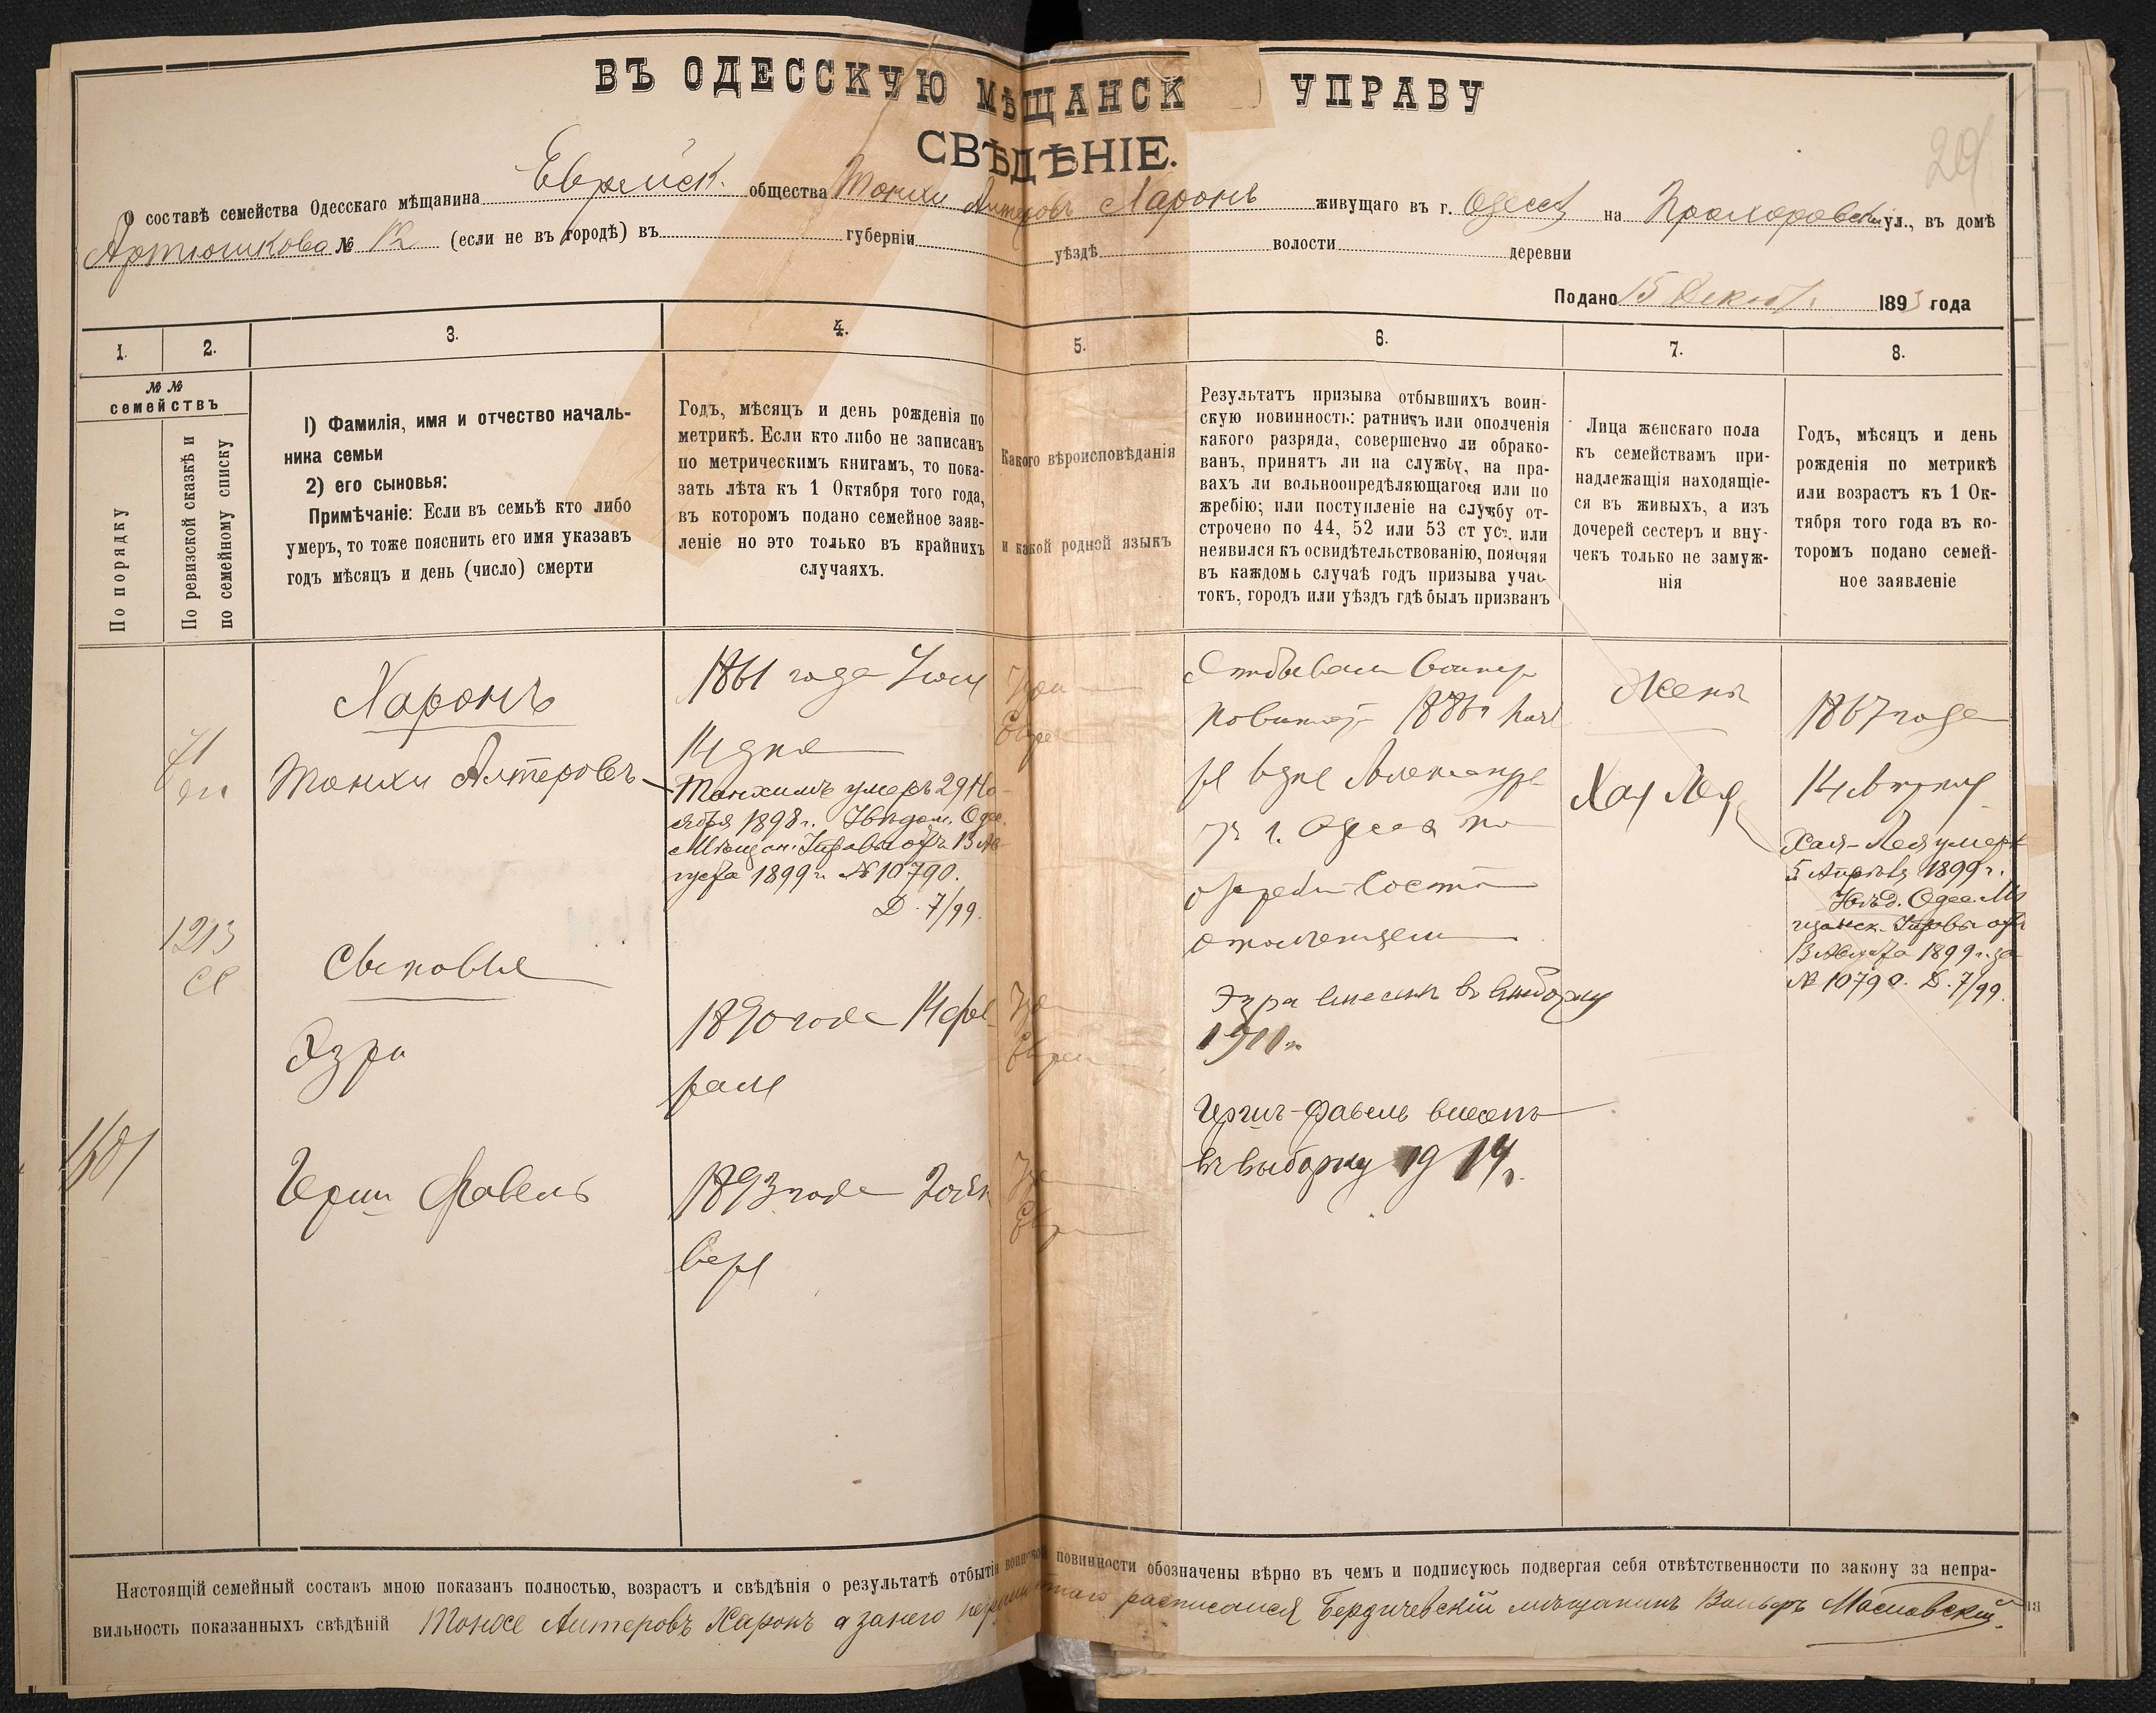 ВЪ ОДЕССКУЮ МѢЩАНСК УПРАВУ
СВѢДѢНІЕ.
О составѣ семейства Одесскаго мѣщанина Еврейск. общества Тонхи Алтеровъ Харонъ живущаго въ г. Одессѣ на Прохоровской ул., въ домѣ
Артюшкова № 12 (если не въ городѣ) въ губерніи уѣздѣ волости деревни
Подано 15 Декаб. 1893 года
1. 2. 3. 4. 5. 6. 7. 8.
№ №
семействъ
По порядку
По ревизской сказкѣ и
по семейному списку
1) Фамилія, имя и отчество началь-
ника семьи
2) его сыновья:
Примѣчаніе: Если въ семьѣ кто либо
умеръ, то тоже пояснить его имя указавъ
годъ мѣсяцъ и день (число) смерти
Годъ, мѣсяцъ и день рожденія по
метрикѣ. Если кто либо не записанъ
по метрическимъ книгамъ, то пока-
зать лѣта къ 1 Октября того года,
въ которомъ подано семейное заяв-
леніе но это только въ крайнихъ
случаяхъ.
Какого вѣроисповѣданія
и какой родной языкъ
Результатъ призыва отбывшихъ воин-
скую повинность: ратникъ или ополченія
какого разряда, совершенно ли обрако-
ванъ, принятъ ли на службу, на пра-
вахъ ли вольноопредѣляющагося или по
жребію; или поступленіе на службу от-
строчено по 44, 52 или 53 ст уст. или
неявился къ освидѣтельствованію, поясняя
въ каждомъ случаѣ годъ призыва учас-
токъ, городъ или уѣздъ гдѣ былъ призванъ
Лица женскаго пола
къ семействамъ при-
надлежащія находящіе-
ся въ живыхъ, а изъ
дочерей сестеръ и вну-
чекъ только не замуж-
нія
Годъ, мѣсяцъ и день
рожденія по метрикѣ
или возрастъ къ 1 Ок-
тября того года въ ко-
торомъ подано семей-
ное заявленіе
71
Харонъ
Тонхи Алтеровъ
1861 года
14 дня
Тонхимъ умеръ 29 Но-
ября 1898 г. Увѣдом. Одес.
Мѣщан. Управы отъ 13 Ав-
густа 1899 г. № 10790.
Д. 7/99.
1213
Сыновья
Эзра
1890 года 14 фев
раля
1601
Герш Фавель
1893 года
Отбывалъ воинск
повинност 1886 г
г. Одесса по
ополченцем
Эзра внесенъ въ выборку
1911 г.
Гершъ-Фавель внесенъ
въ выборку 1914 г.
Жена
Хая Лея
1867 года
14 Августа
Хая-Лея умерла
5 Апрѣля 1899 г.
Увѣд. Одес. Мѣ
щанск. Управы отъ
13 Августа 1899 г. за
№ 10790. Д. 7/99.
Настоящій семейный составъ мною показанъ полностью, возрастъ и свѣдѣнія о результатѣ отбытія воинской повинности обозначены вѣрно въ чемъ и подписуюсь подвергая себя отвѣтственности по закону за непра-
вильность показанныхъ свѣдѣній Тонхе Алтеровъ Харонъ а за него неграмотнаго расписался Бердичевскій мѣщанинъ Вольфъ Масловскій.